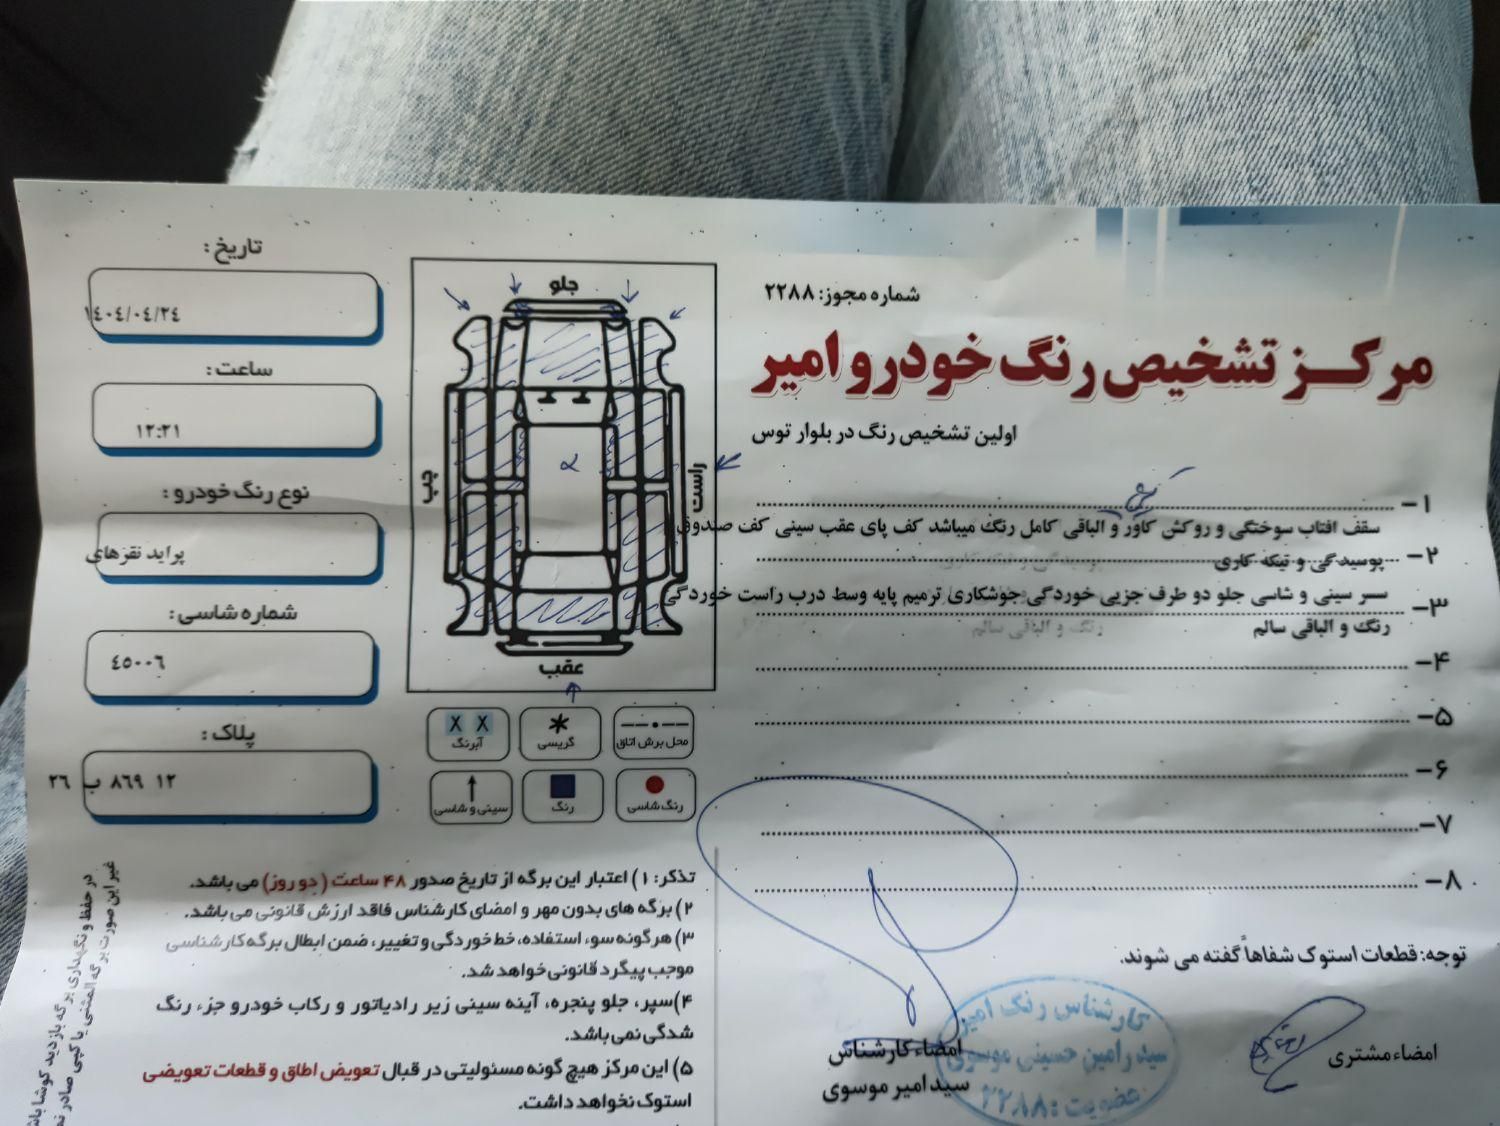 شماره مجوز: ۲۲۸۸
مرکز تشخیص رنگ خودرو امیر
اولین تشخیص رنگ در بلوار توس
۱-
سقف افتاب سوختگی و روکش کاور و الباقی کامل رنگ میباشد کف پای عقب سینی کف صندوق
۲- پوسیدگی و تیکه کاری
سر سینی و شاسی جلو دو طرف جزیی خوردگی جوشکاری ترمیم پایه وسط درب راست خوردگی
۳-
رنگ و الباقی سالم
۴-
۵-
۶-
۷-
۸-
توجه: قطعات استوک شفاهاً گفته می شوند.
امضاء مشتری
امضاء کارشناس
سید امیر موسوی
کارشناس رنگ امیر
سید رامین حسینی موسوی
عضویت: ۲۲۸۸
جلو
راست
چپ
عقب
محل برش اتاق
گریسی
X X
آبرنگ
رنگ شاسی
رنگ
سینی و شاسی
تاریخ:
۱٤۰٤/۰٤/۲٤
ساعت:
۱۲:۲۱
نوع رنگ خودرو:
پراید نقرهای
شماره شاسی:
٤٥۰۰٦
پلاک:
۲٦ ب ۸٦۹ ۱۲
تذکر: ۱) اعتبار این برگه از تاریخ صدور ۴۸ ساعت (دو روز) می باشد.
۲) برگه های بدون مهر و امضای کارشناس فاقد ارزش قانونی می باشد.
۳) هر گونه سوء استفاده، خط خوردگی و تغییر، ضمن ابطال برگه کارشناسی
موجب پیگرد قانونی خواهد شد.
۴) سپر، جلو پنجره، آینه سینی زیر رادیاتور و رکاب خودرو جزء رنگ
شدگی نمی باشد.
۵) این مرکز هیچ گونه مسئولیتی در قبال تعویض اطاق و قطعات تعویضی
استوک نخواهد داشت.
در حفظ و نگهداری برگه بازدید کوشا
غیر این صورت برگه المثنی یا کپی صادر